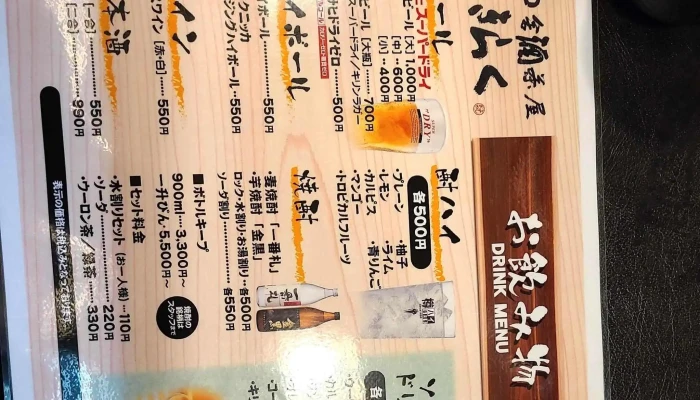 酒菜屋
弘く
お飲み物
DRINK MENU
ール
スーパードライ
ビール [大] 1,000円
[中] …600円
[小] …400円
ビール [大瓶] ……700円
スーパードライ／キリンラガー
ドライゼロ ……500円
イボール
イボール ……550円
クニッカ
ジンジハイボール…550円
イン
ワイン [赤・白] ……550円
本酒
[一合] ……550円
[二合] ……990円
酎ハイ
各500円
・プレーン
・レモン
・カルピス
・マンゴー
・トロピカルフルーツ
・柚子
・ライム
・青りんご
焼酎
・麦焼酎「一番札」
・芋焼酎「金黒」
ロック・水割り・お湯割り…各500円
ソーダ割り ……各550円
■ボトルキープ
900ml … 3,300円〜
一升びん … 5,500円〜
焼酎の
銘柄は
スタッフまで
■セット料金
・水割りセット（お一人様）…110円
・ソーダ ……220円
・ウーロン茶／緑茶 ……330円
表示の価格は税込みとなっております
ソ
ド
各